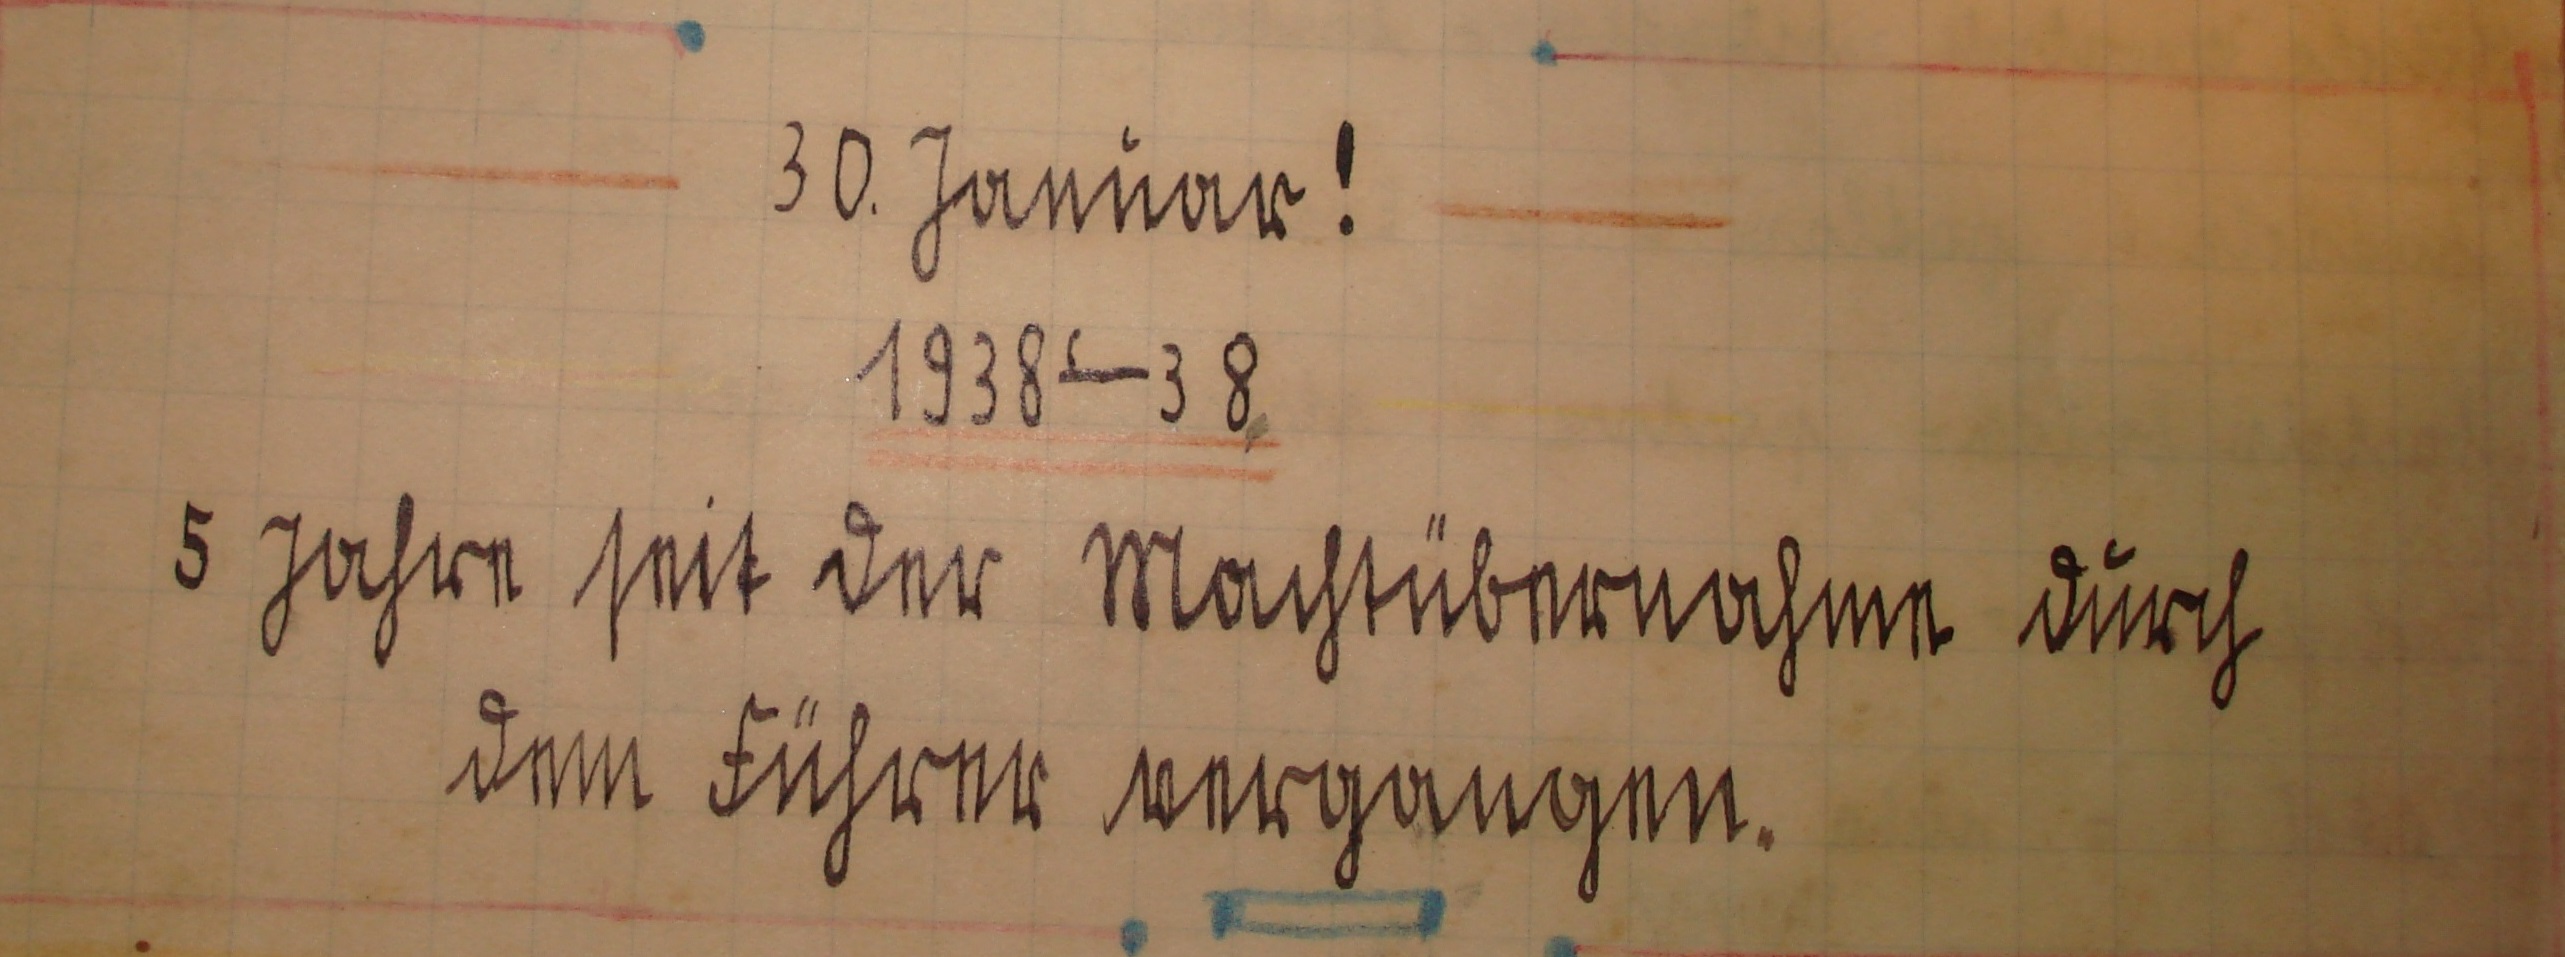 30. Januar!
1938-38
5 Jahre seit der Machtübernahme durch
dem Führer vergangen.